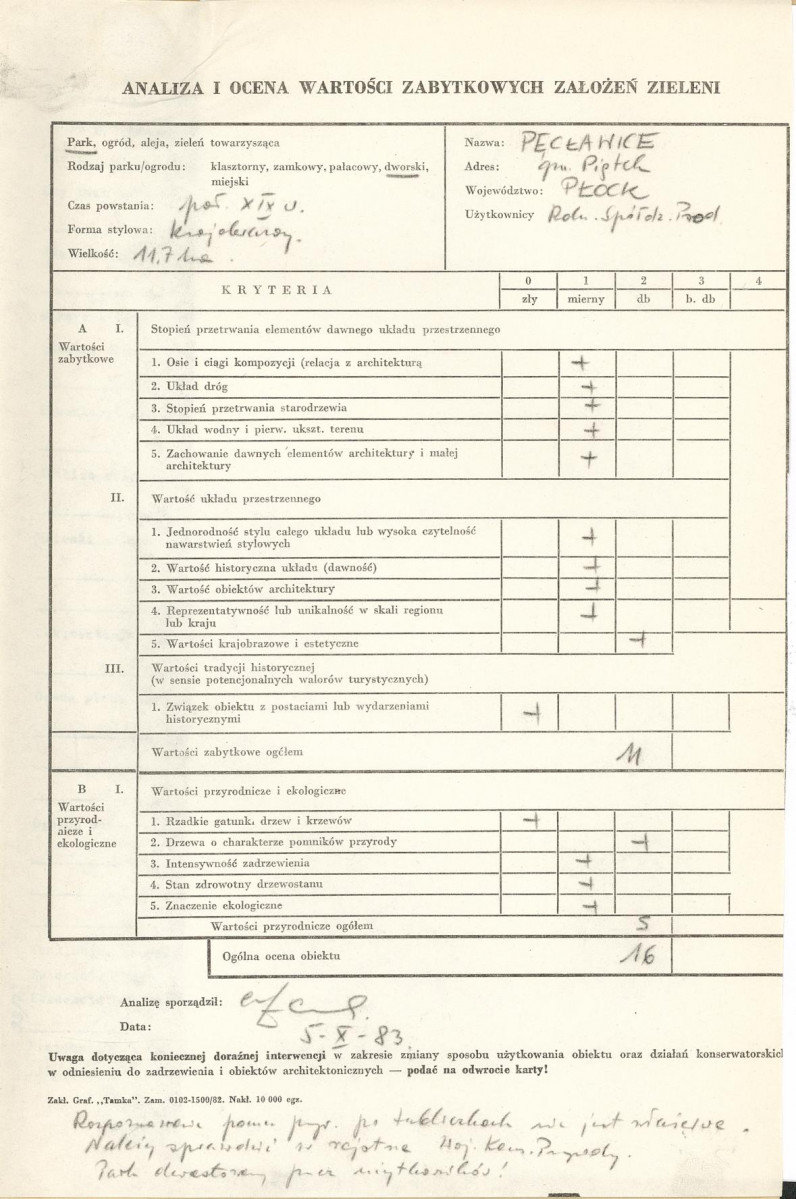 ANALIZA I OCENA WARTOŚCI ZABYTKOWYCH ZAŁOŻEŃ ZIELENI
Park, ogród, aleja, zieleń towarzysząca
Rodzaj parku/ogrodu: klasztorny, zamkowy, pałacowy, dworski,
miejski
Czas powstania: poł. XIX w.
Forma stylowa: krajobrazowy.
Wielkość: 11,7 ha.
Nazwa: PĘCŁAWICE
Adres: gm. Piątek
Województwo: PŁOCK
Użytkownicy Roln. Spółdz. Prod
KRYTERIA
0 1 2 3 4
zły mierny db b. db
A I. Stopień przetrwania elementów dawnego układu przestrzennego
Wartości
zabytkowe
1. Osie i ciągi kompozycji (relacja z architekturą +
2. Układ dróg +
3. Stopień przetrwania starodrzewia +
4. Układ wodny i pierw. ukszt. terenu +
5. Zachowanie dawnych elementów architektury i małej
architektury +
II. Wartość układu przestrzennego
1. Jednorodność stylu całego układu lub wysoka czytelność
nawarstwień stylowych +
2. Wartość historyczna układu (dawność) +
3. Wartość obiektów architektury +
4. Reprezentatywność lub unikalność w skali regionu
lub kraju +
5. Wartości krajobrazowe i estetyczne +
III. Wartości tradycji historycznej
(w sensie potencjonalnych walorów turystycznych)
1. Związek obiektu z postaciami lub wydarzeniami
historycznymi +
Wartości zabytkowe ogółem 11
B I. Wartości przyrodnicze i ekologiczne
Wartości
przyrod-
nicze i
ekologiczne
1. Rzadkie gatunki drzew i krzewów +
2. Drzewa o charakterze pomników przyrody +
3. Intensywność zadrzewienia +
4. Stan zdrowotny drzewostanu +
5. Znaczenie ekologiczne +
Wartości przyrodnicze ogółem 5
Ogólna ocena obiektu 16
Analizę sporządził:
Data: 5-X-83
Uwaga dotycząca koniecznej doraźnej interwencji w zakresie zmiany sposobu użytkowania obiektu oraz działań konserwatorskich
w odniesieniu do zadrzewienia i obiektów architektonicznych — podać na odwrocie karty!
Zakł. Graf. „Tamka". Zam. 0102-1500/82. Nakł. 10 000 egz.
pomn. przyr. po tabliczkach nie jest właściwe.
Należy sprawdzić w Woj. Kons. Przyrody.
Park przez użytkowników!